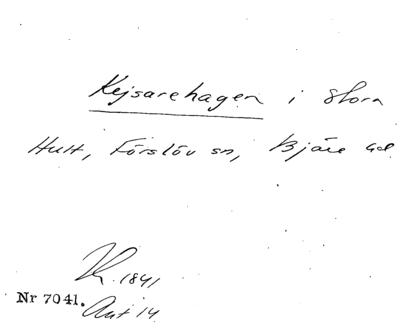 Kejsarehagen i Stora
Hult, Förslöv sn, Bjäre hd
K. 1841
Nr 7041.
Akt 14